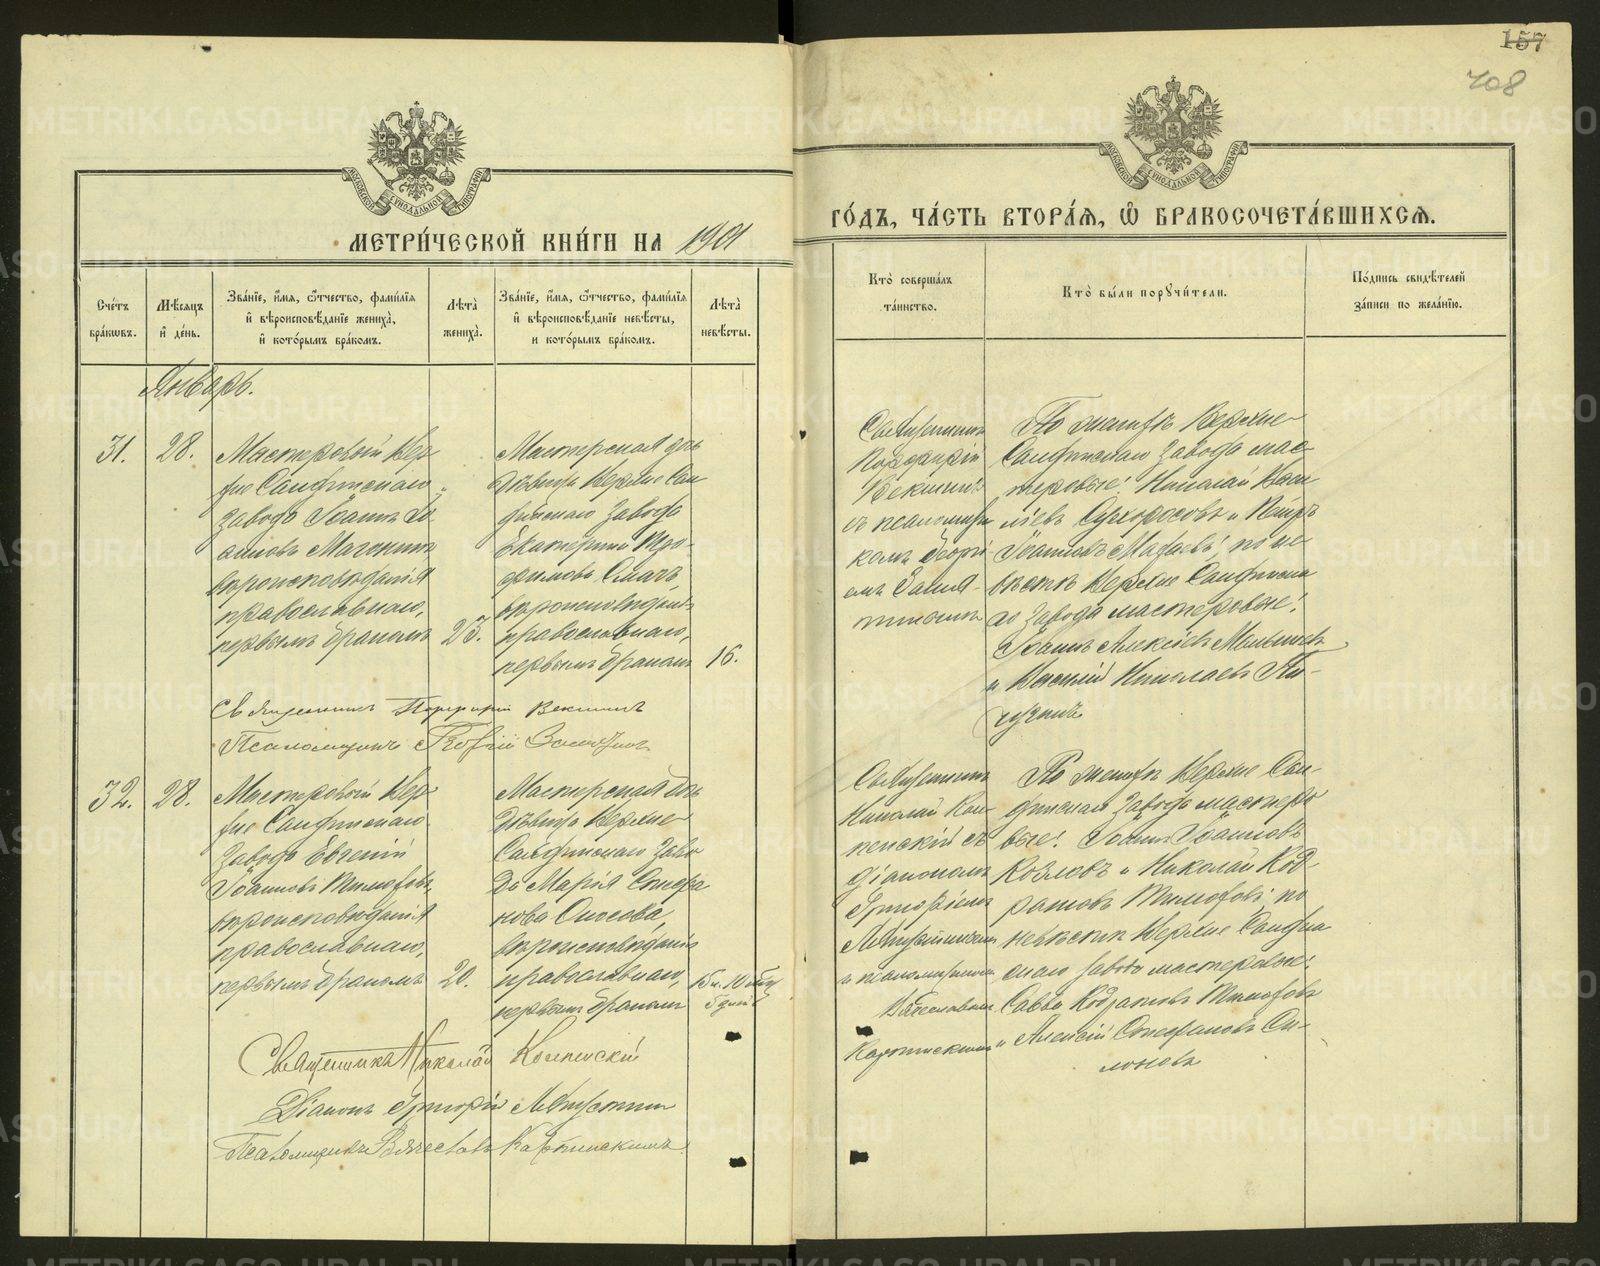 157
708
МЕТРИ́ЧЕСКОЙ КНИ́ГИ НА 1901
ГО́ДЪ, ЧА́СТЬ ВТОРА́Я, Ѽ БРАКОСОЧЕТА́ВШИХСЯ.
Сче́тъ бра́ковъ.
Мѣ́сяцъ и де́нь.
Зва́нїе, и́мя, ѻ҆́тчество, фами́лїя и вѣроисповѣ́данїе жениха̀, и кото́рымъ бра́комъ.
Лѣ́та жениха̀.
Зва́нїе, и́мя, ѻ҆́тчество, фами́лїя и вѣроисповѣ́данїе невѣ́сты, и кото́рымъ бра́комъ.
Лѣ́та невѣ́сты.
Кто̀ соверша́лъ та́инство.
Кто̀ бы́ли порꙋчи́тели.
По́дпись свидѣ́телей за́писи по жела́нїю.
Январь.
31.
28.
Мастеровый Вер
хне Салдинскаго
завода Іоаннъ
вѣроисповѣданія
православнаго,
первымъ бракомъ
23.
Мастерская дочь
дѣвица Верхне Сал
динскаго завода
Екатерина Тро
фимова
вѣроисповѣданія
православнаго,
первымъ бракомъ
16.
Священникъ
Порфирій
Векшинъ
съ псаломщи
комъ Георгі
емъ
По женихѣ Верхне
Салдинскаго завода мас
теровые: Николай Васи
льевъ Сухоросовъ и Петръ
Іоанновъ по не
вѣстѣ Верхне Салдинска
го завода мастеровые:
Іоаннъ Алексѣевъ Малышевъ
и Василій Николаевъ
Священникъ Порфирій Векшинъ
Псаломщикъ Георгій
32.
28.
Мастеровый Вер
хне Салдинскаго
завода Евгеній
Іоанновъ Тимофѣевъ,
вѣроисповѣданія
православнаго,
первымъ бракомъ
20.
Мастерская дочь
дѣвица Верхне
Салдинскаго заво
да Марія Стефа
нова
вѣроисповѣданія
православнаго,
первымъ бракомъ
15 л. 10
5 дней
Священникъ
Николай
съ
діакономъ
Григоріемъ
и псаломщикомъ
Вячеславомъ
По женихѣ Верхне Сал
динскаго завода мастеро
вые: Іоаннъ Іоанновъ
Козловъ и Николай Код
ратовъ Тимофѣевъ; по
невѣстѣ Верхне Салдин
скаго завода мастеровые:
Савва Кодратовъ Тимофѣевъ
и Алексій Стефановъ
Священникъ Николай
Діаконъ Григорій
Псаломщикъ Вячеславъ
METRIKI.GASO-URAL.RU